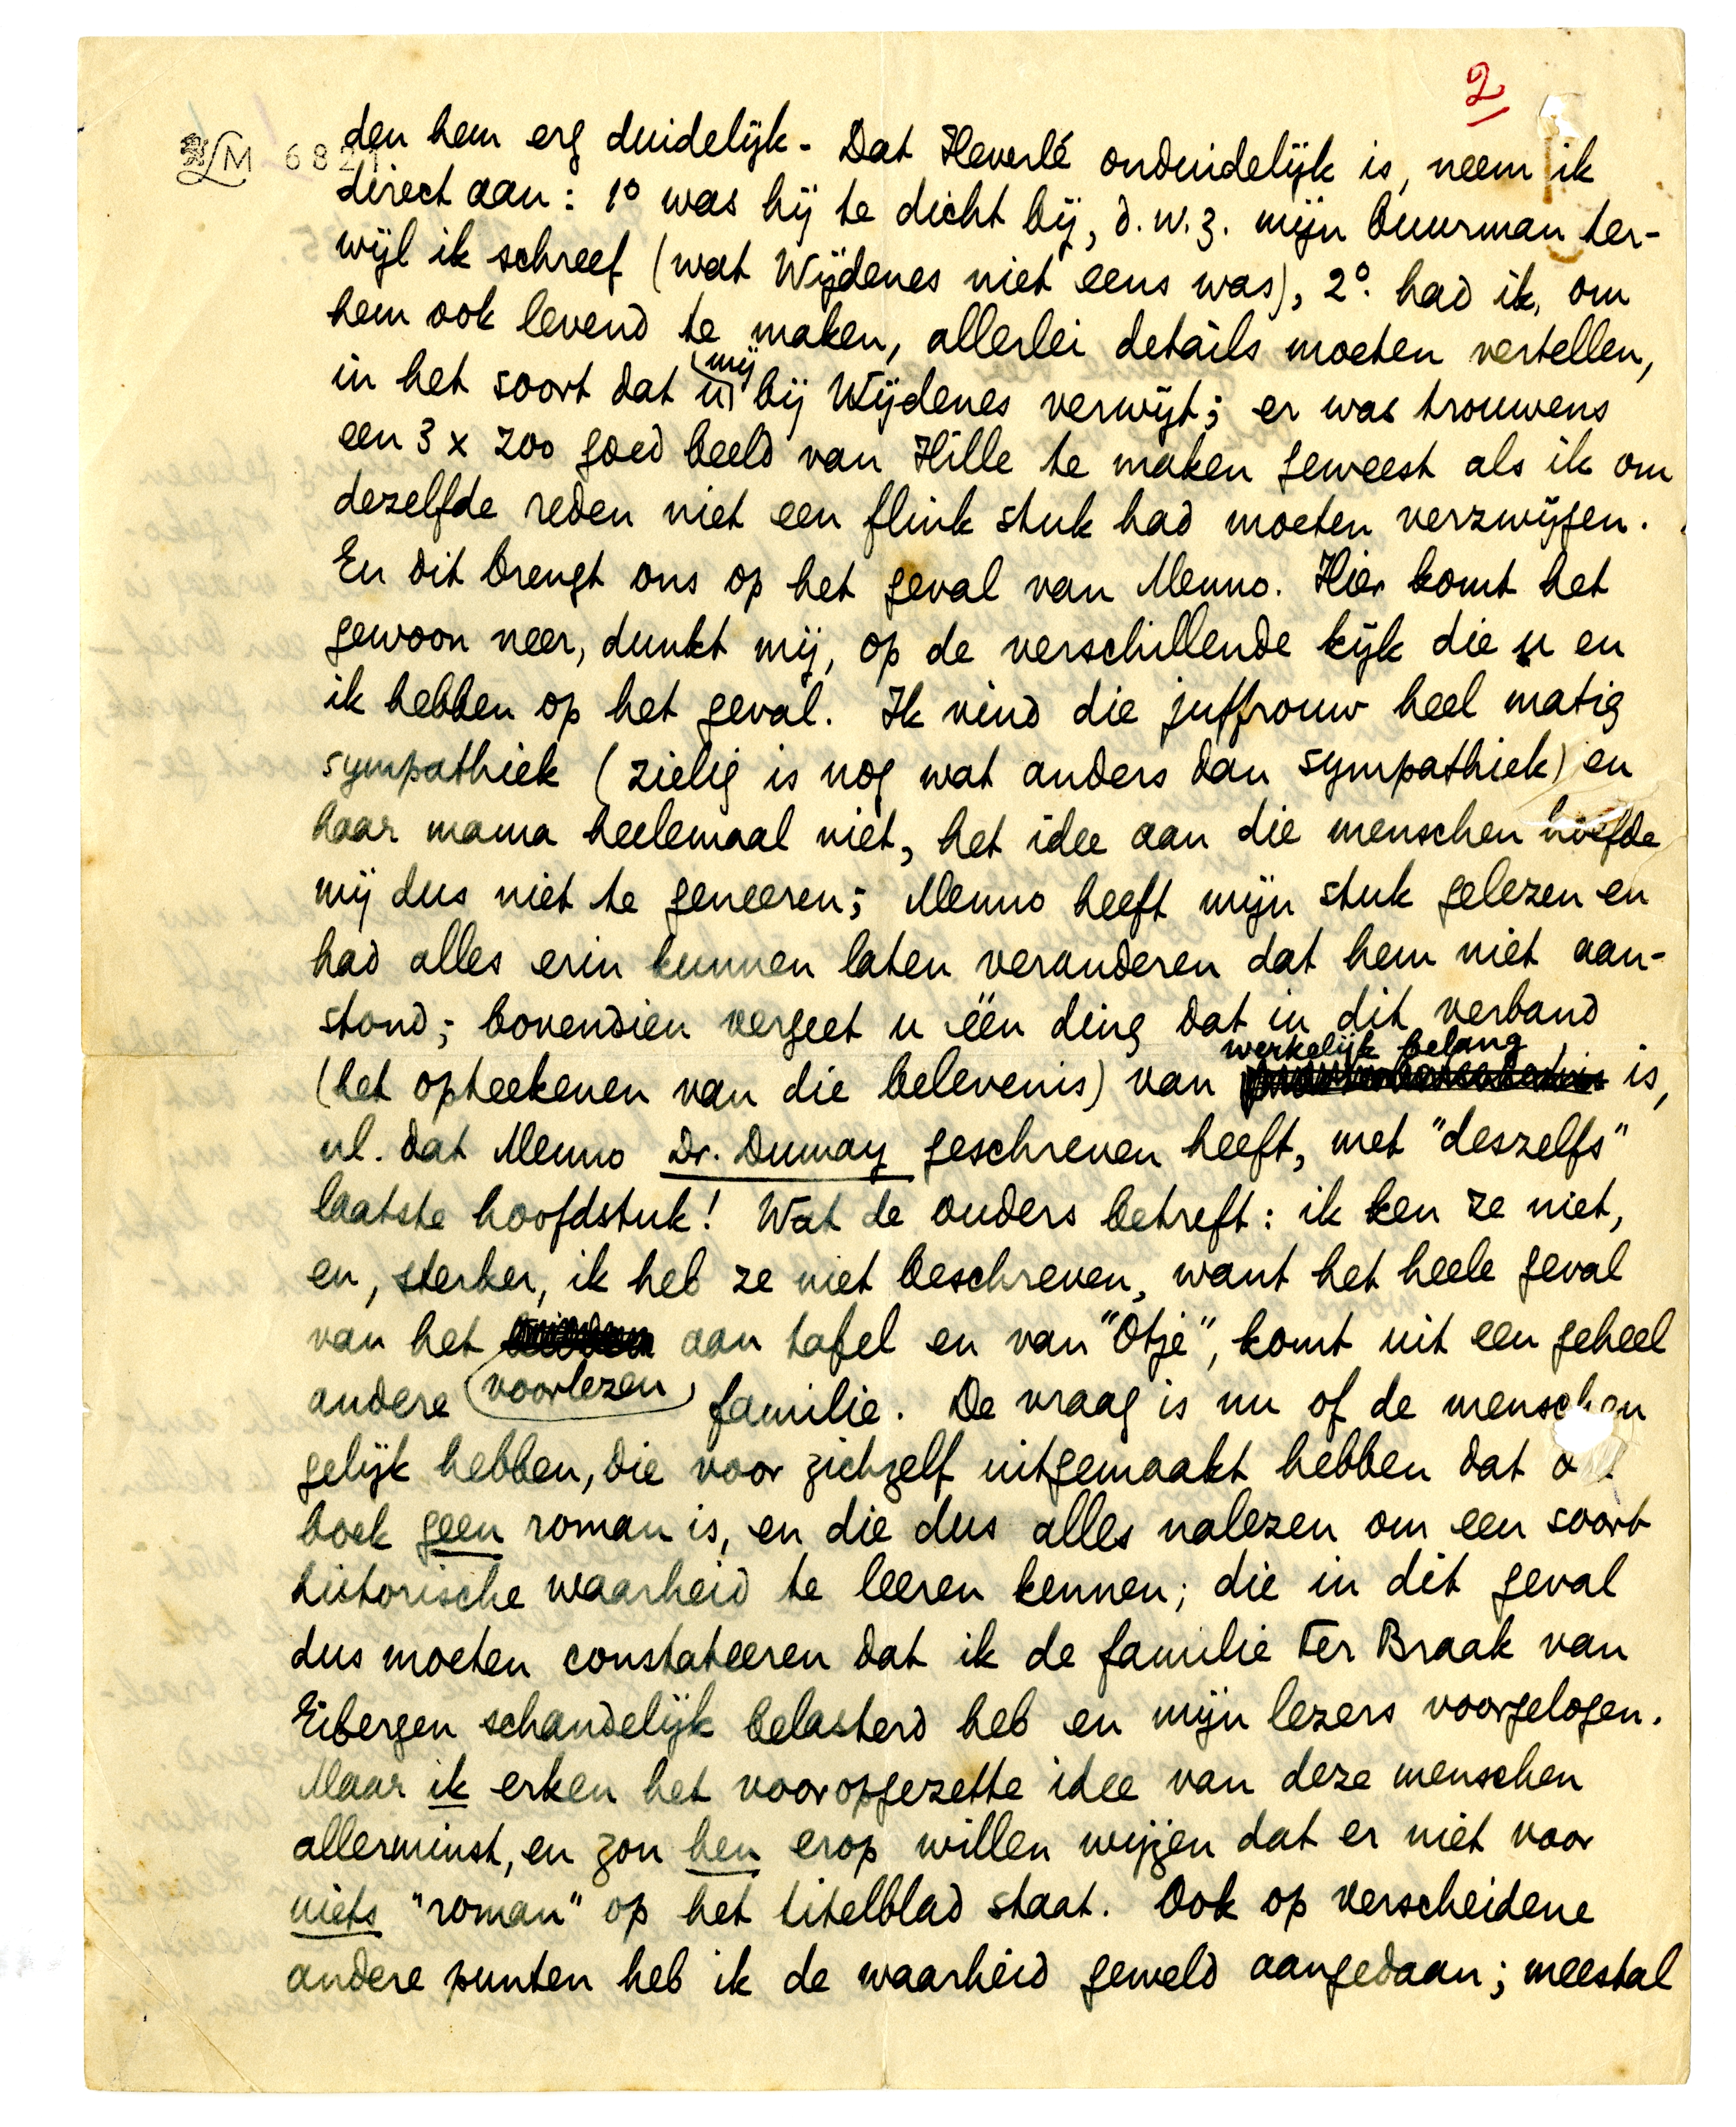 2
LM 6821
den hem erg duidelijk. Dat Heverlé onduidelijk is, neem ik
direct aan: 1° was hij te dicht bij, d.w.z. mijn buurman ter-
wijl ik schreef (wat Wijdenes niet eens was), 2° had ik, om
hem ook levend te maken, allerlei détails moeten vertellen,
mij
in het soort dat u bij Wijdenes verwijt; er was trouwens
een 3 x zoo goed beeld van Hille te maken geweest als ik om
dezelfde reden niet een flink stuk had moeten verzwijgen.
En dit brengt ons op het geval van Menno. Hier komt het
gewoon neer, dunkt mij, op de verschillende kijk die u en
ik hebben op het geval. Ik vind die juffrouw heel matig
sympathiek (zielig is nog wat anders dan sympathiek) en
haar mama heelemaal niet, het idee aan die menschen hoefde
mij dus niet te geneeren; Menno heeft mijn stuk gelezen en
had alles erin kunnen laten veranderen dat hem niet aan-
stond; bovendien vergeet u één ding dat in dit verband
werkelijk belang
(het opteekenen van die belevenis) van is,
nl. dat Menno Dr. Dumay geschreven heeft, met "deszelfs"
laatste hoofdstuk! Wat de ouders betreft: ik ken ze niet,
en, sterker, ik heb ze niet beschreven, want het heele geval
van het aan tafel en van "Otje", komt uit een geheel
andere voorlezen familie. De vraag is nu of de menschen
gelijk hebben, die voor zichzelf uitgemaakt hebben dat
boek geen roman is, en die dus alles nalezen om een soort
historische waarheid te leeren kennen; die in dit geval
dus moeten constateeren dat ik de familie Ter Braak van
Eibergen schandelijk belasterd heb en mijn lezers voorgelogen.
Maar ik erken het vooropgezette idee van deze menschen
allerminst, en zou hen erop willen wijzen dat er niet voor
niets "roman" op het titelblad staat. Ook op verscheidene
andere punten heb ik de waarheid geweld aangedaan; meestal